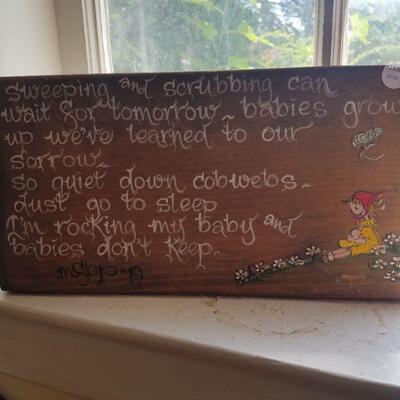 sweeping and scrubbing can
wait for tomorrow ~ babies grow
up we've learned to our
sorrow ~
so quiet down cobwebs ~
dust go to sleep
I'm rocking my baby and
babies don't keep ~